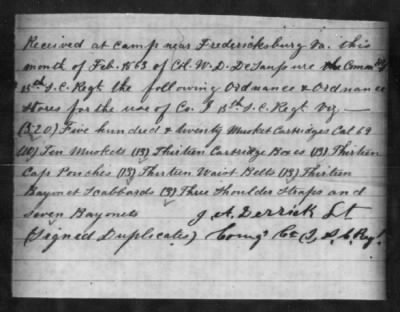 Received at camp near Fredericksburg Va. this
month of Feb. 1863 of Col. W. D. DeSaussure Comm'dg
15th S. C. Regt the following Ordnance & Ordnance
Stores for the use of Co. I 15th S. C. Regt Viz —
(520) Five hundred & twenty Musket Cartridges Cal 69
(10) Ten Muskets (13) Thirteen Cartridge Boxes (13) Thirteen
Cap Pouches (13) Thirteen Waist Belts (13) Thirteen
Bayonet Scabbards (3) Three Shoulder Straps and
Seven Bayonets J. A. Derrick Lt
(Signed Duplicates) Comg' Co I, S. C. Regt.